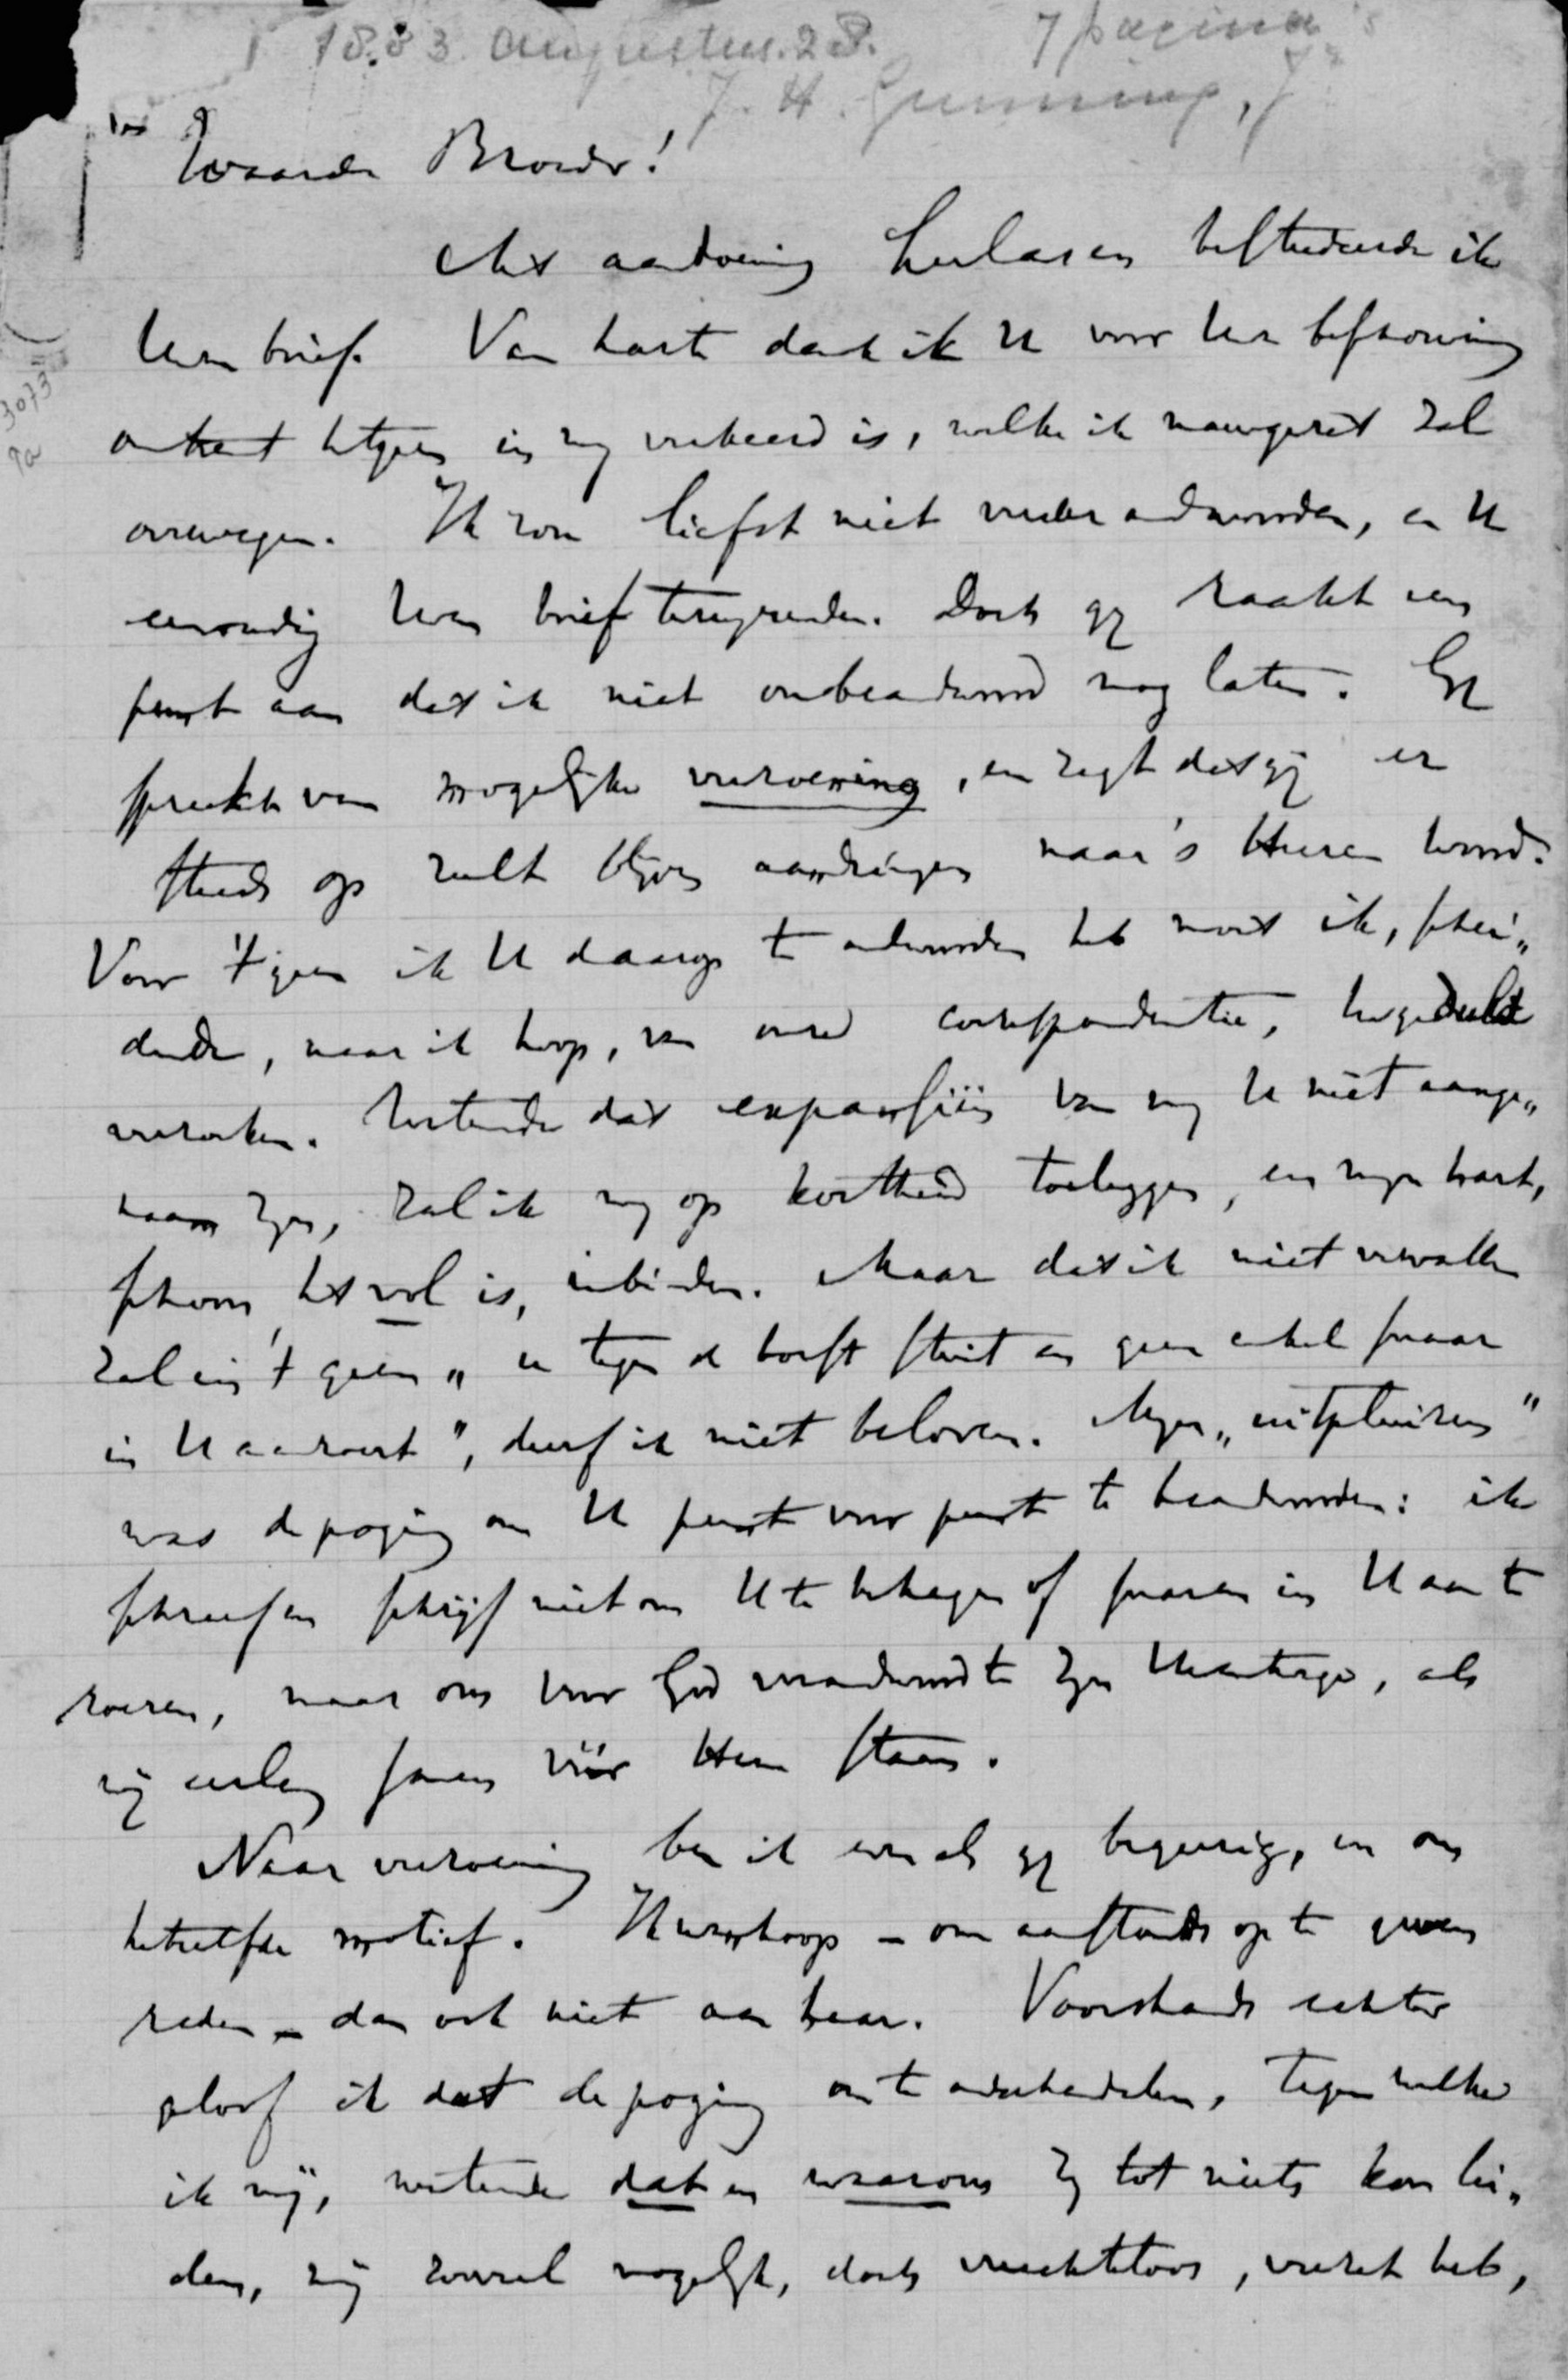 1883 Augustus 28. 7 pagina's
J. H. Gunning, Jr
Waarde Broeder!
Met aandoening herlas en bestudeerde ik
Uwen brief. Van harte dank ik U voor Uwe
hetgeen in mij verkeerd is, welke ik nauwgezet zal
overwegen. Ik zou liefst niet verder antwoorden, en U
eenvoudig Uwen brief terugzenden. Doch gij raakt een
punt aan dat ik niet onbeantwoord mag laten. Gij
spreekt van mogelijke verzoening, en zegt dat gij er
steeds op zult blijven aandringen naar 's Heeren woord.
Voor 't geen ik U daarop te antwoorden heb moet ik, schei„
dende, naar ik hoop, van onze correspondentie, Uw geduld
verzoeken. Wetende dat expansiën van mij U niet aange„
naam zijn, zal ik mij op kortheid toeleggen, en mijn hart,
schoon het vol is, inbinden. Maar dat ik niet vervallen
zal in 't geen „U tegen de borst stuit en geen enkele snaar
in U aanroert", durf ik niet beloven. Mijn „uitpluizen"
was de poging om U punt voor punt te beantwoorden: ik
schreef en schrijf niet om U te behagen of snaren in U aan te
roeren, maar om voor God verantwoord te zijn Uwentwege, als
wij eerlang samen vóór Hem staan.
Naar verzoening ben ik even als gij begeerig, en om
hetzelfde motief. Ik wanhoop – om aanstonds op te geven
reden – dan ook niet aan haar. Voorshands echter
geloof ik dat de poging om te onderhandelen, tegen welke
ik mij, wetende dat en waarom zij tot niets kon lei„
den, mij zooveel mogelijk, doch vruchteloos, verzet heb,